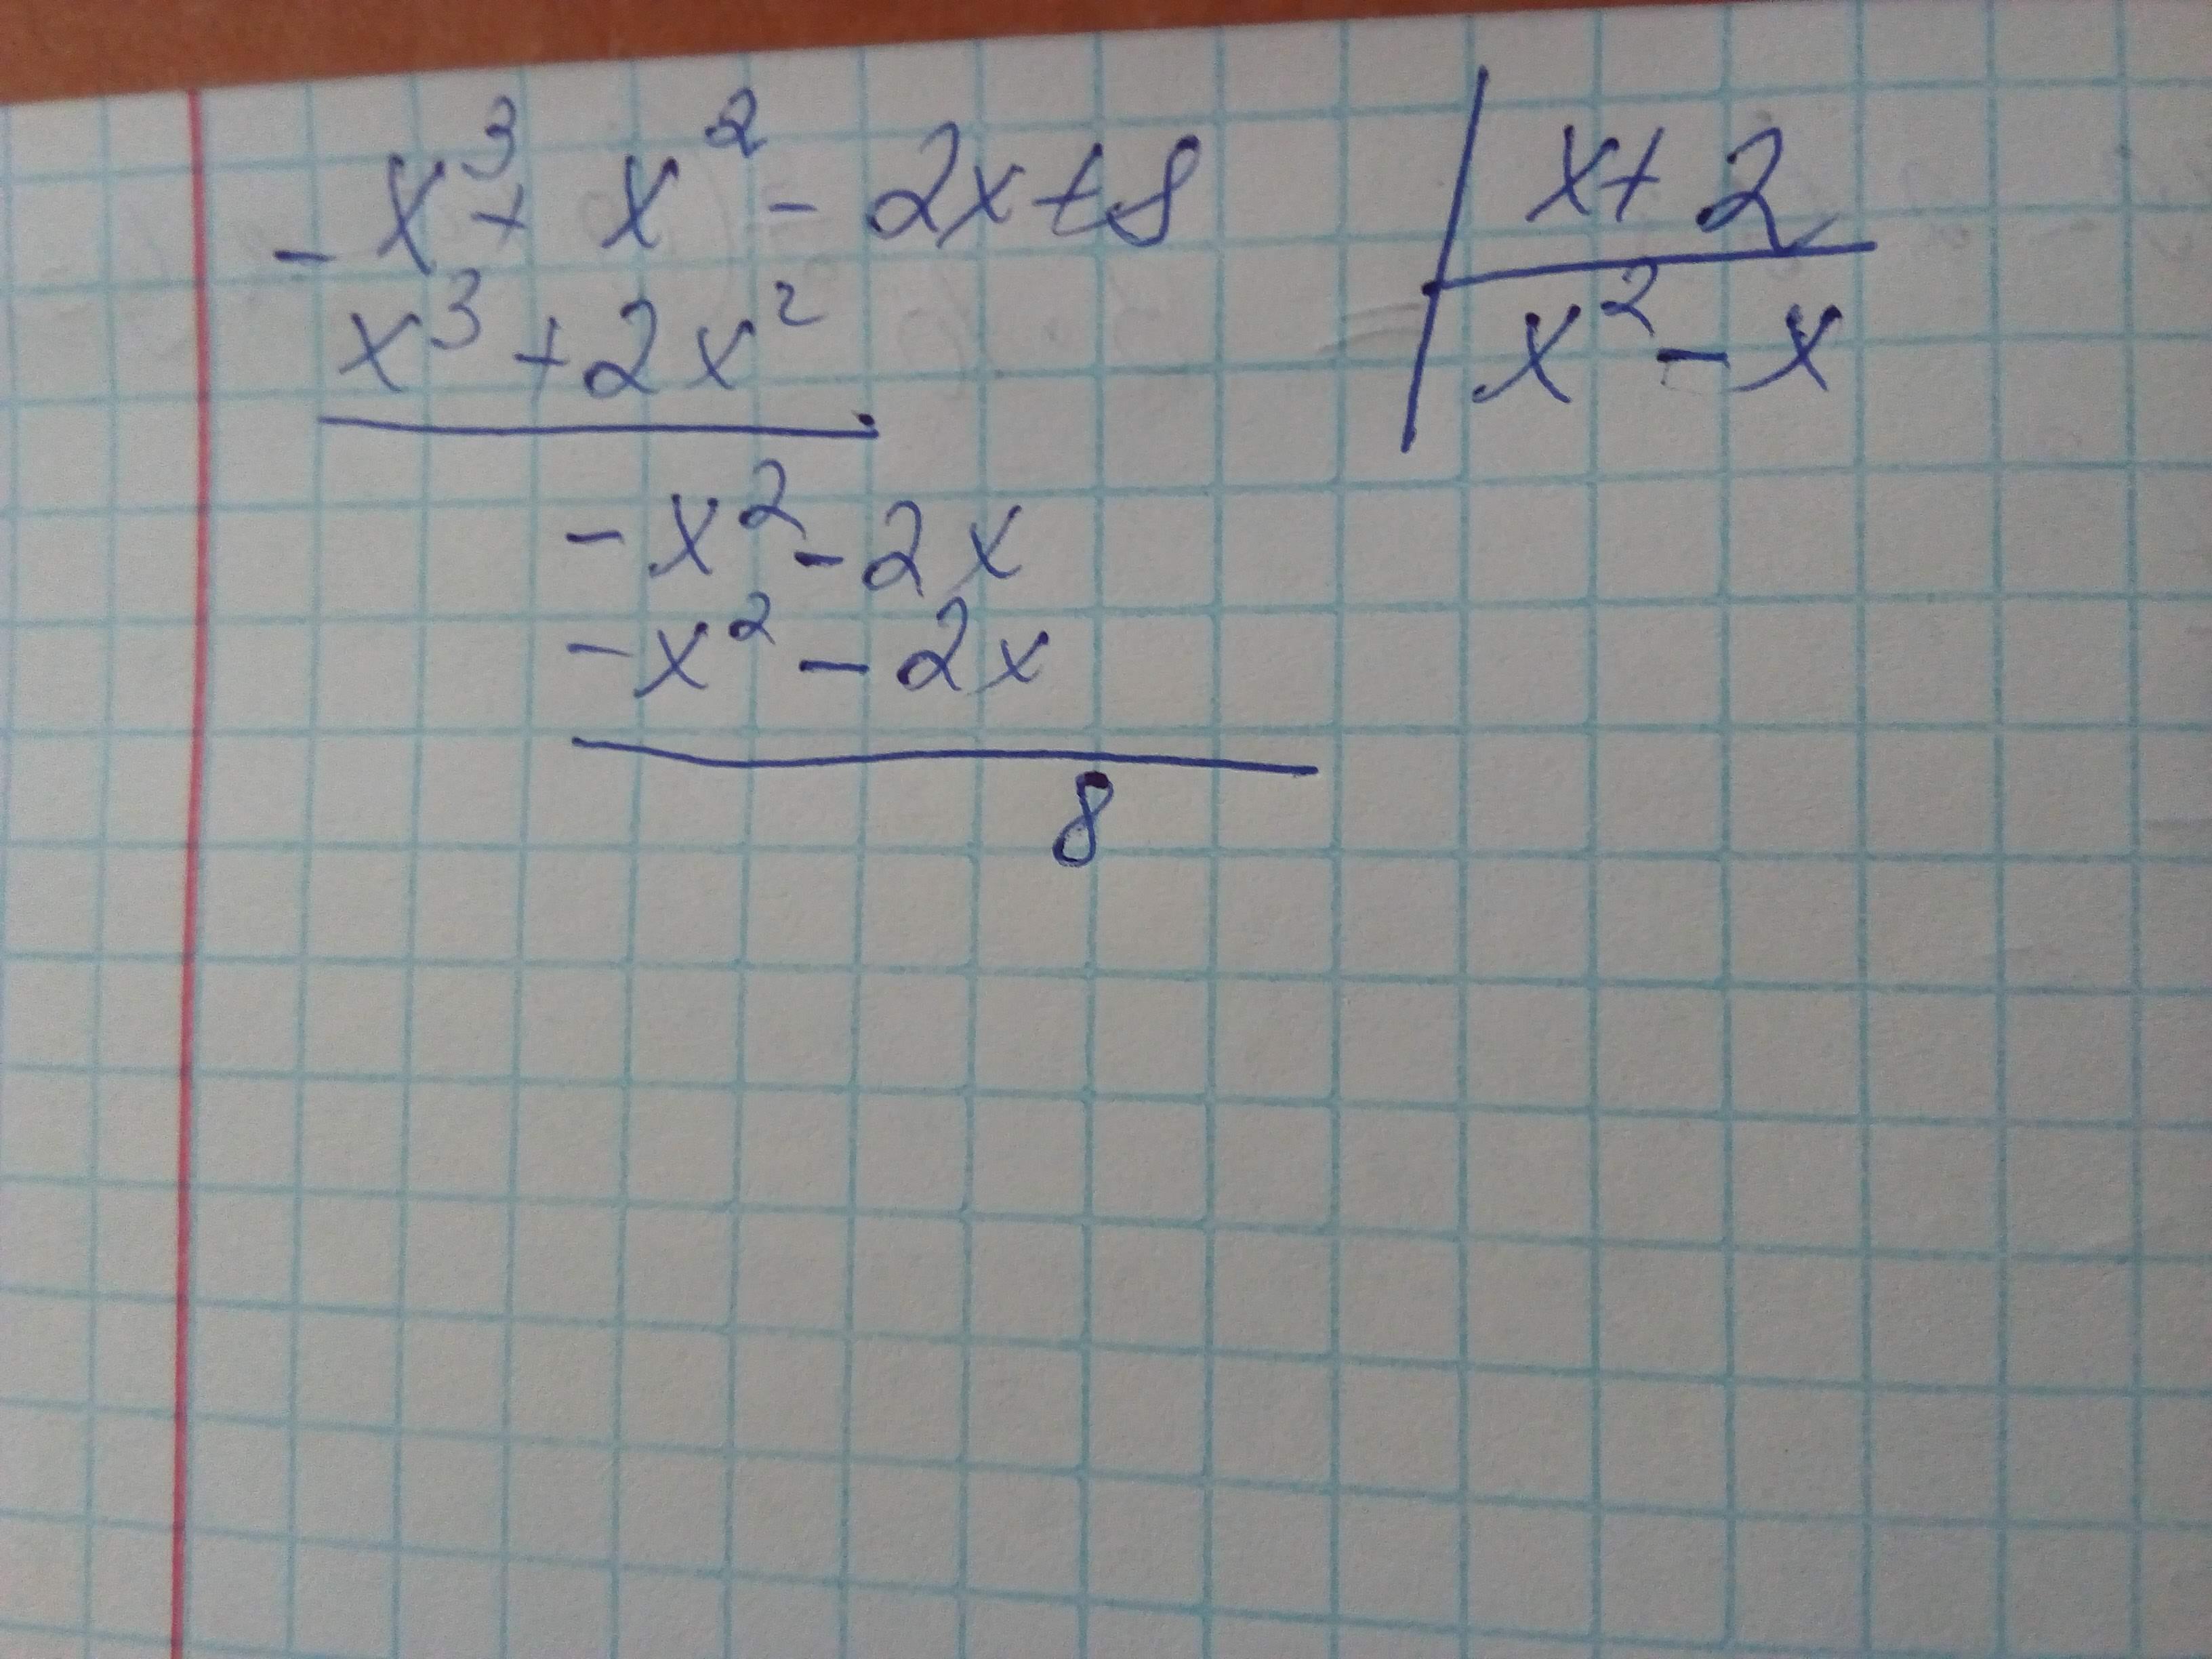 - x³ + x² - 2x + 8 | x + 2
x³ + 2x² | x² - x
- x² - 2x
- x² - 2x
8